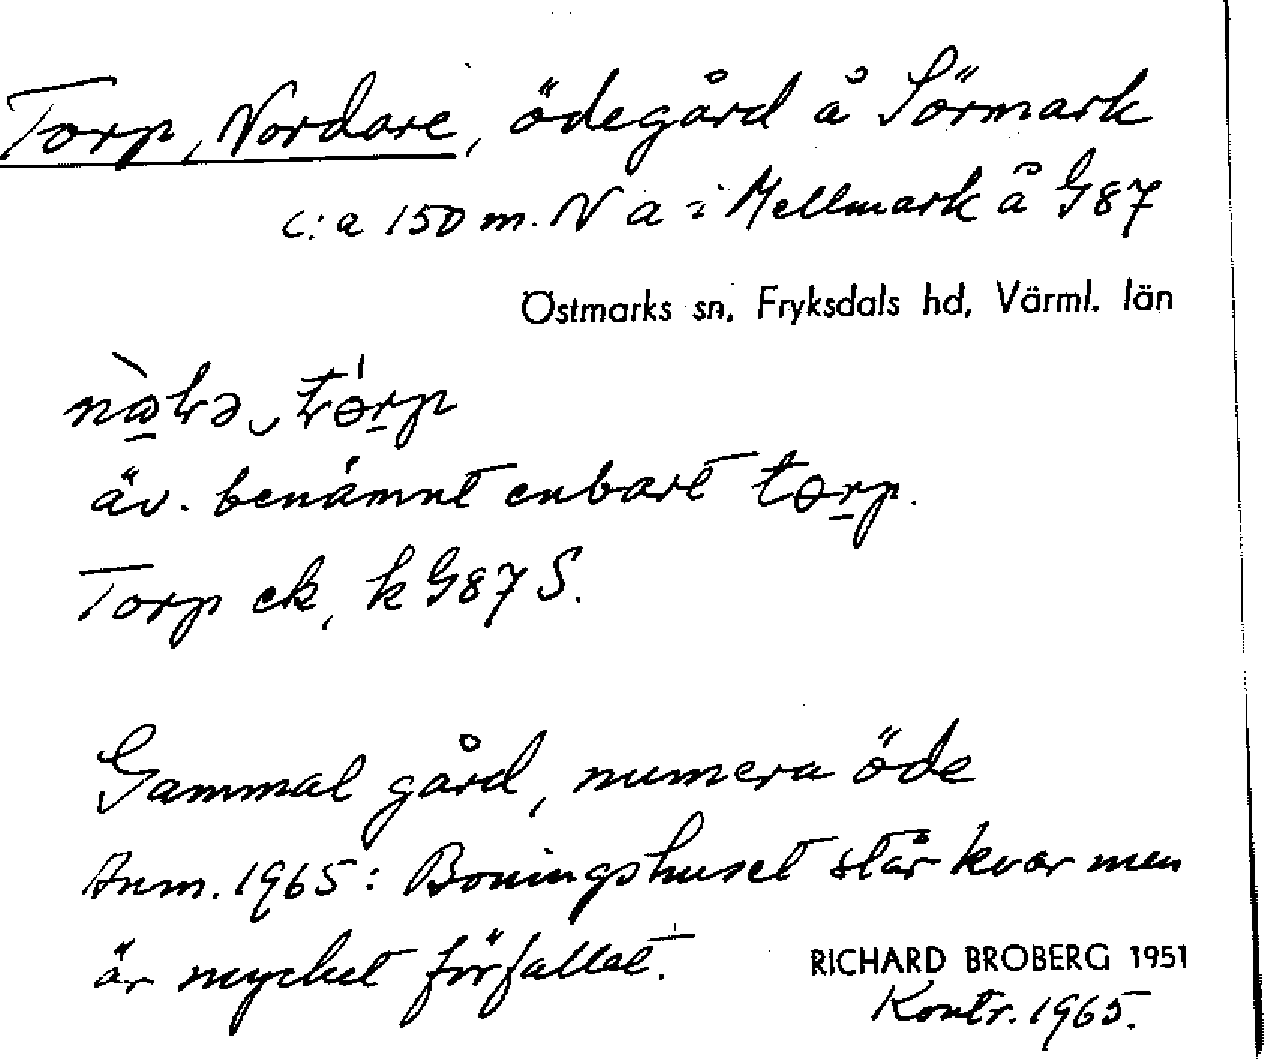 Torp, Nordare, ödegård å Sörmark
c:a 150 m. N a i Mellmark å G87
Östmarks sn, Fryksdals hd, Värml. län
äv. benämnt enbart torp.
Torp ek, k G87 S.
Gammal gård, numera öde
Anm. 1965: Boningshuset står kvar men
är mycket förfallet.
RICHARD BROBERG 1951
Kontr. 1965.